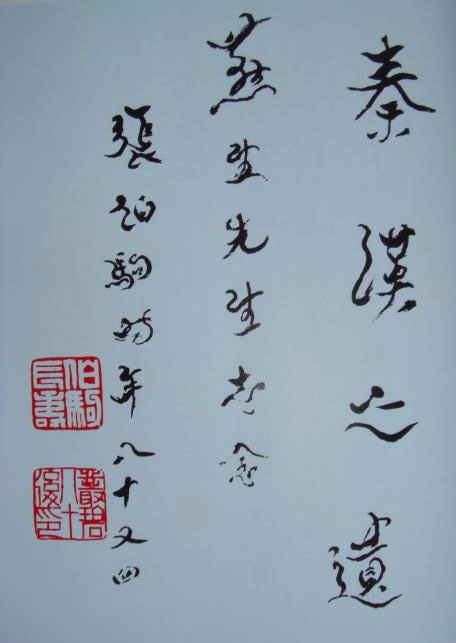 秦漢之遺
燕生先生志念
張伯駒時年八十又四
伯駒長壽
叢碧八十後印